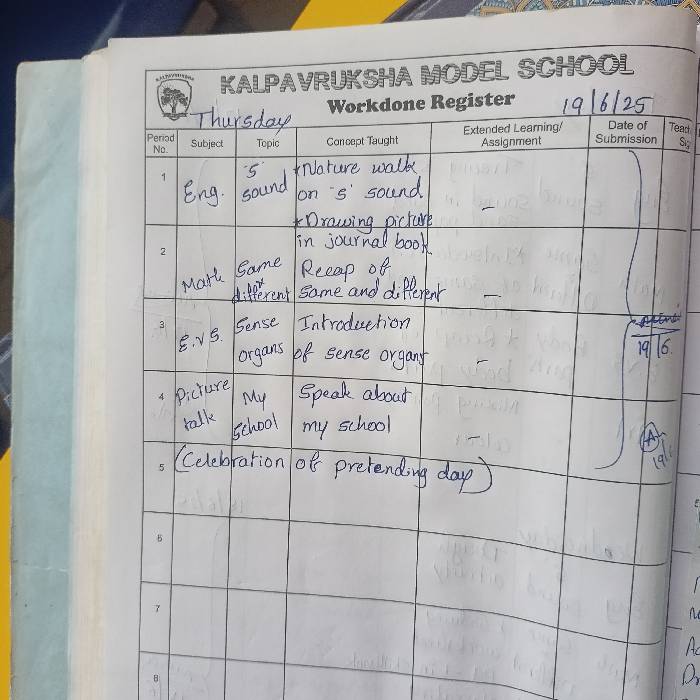 KALPAVRUKSHA
KALPAVRUKSHA MODEL SCHOOL
Workdone Register
Thursday
19/6/25
Period No.
Subject
Topic
Concept Taught
Extended Learning/ Assignment
Date of Submission
1
Eng.
'S' sound
*Nature walk
on 's' sound.
*Drawing picture
in journal book
–
2
Math
Same
different
Recap of
Same and different
–
3
E.V.S.
Sense
organs
Introduction
of sense organs
–
19/6.
4
Picture
talk
My
School
Speak about
my school
–
A
5
(Celebration of pretending day)
6
7
8